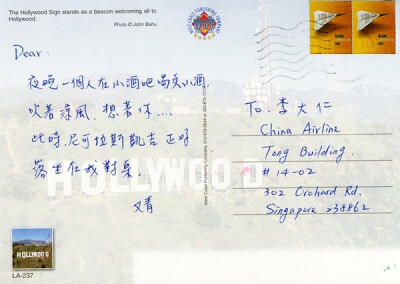 The Hollywood Sign stands as a beacon welcoming all to
Hollywood.
Photo © John Bahu
WEST COAST PUBLISHING COMPANY
Dear:
夜晚一個人在小酒吧喝点小酒,
吹着涼風,想著你....
此時,尼可拉斯凱吉正好
落坐在我對桌。
又青
To: 李大仁
China Airline
Tong Building.
#14-02
302 Orchard Rd.
Singapore 238862
West Coast Publishing Company
HOLLYWOOD
HOLLYWOOD
LA-237